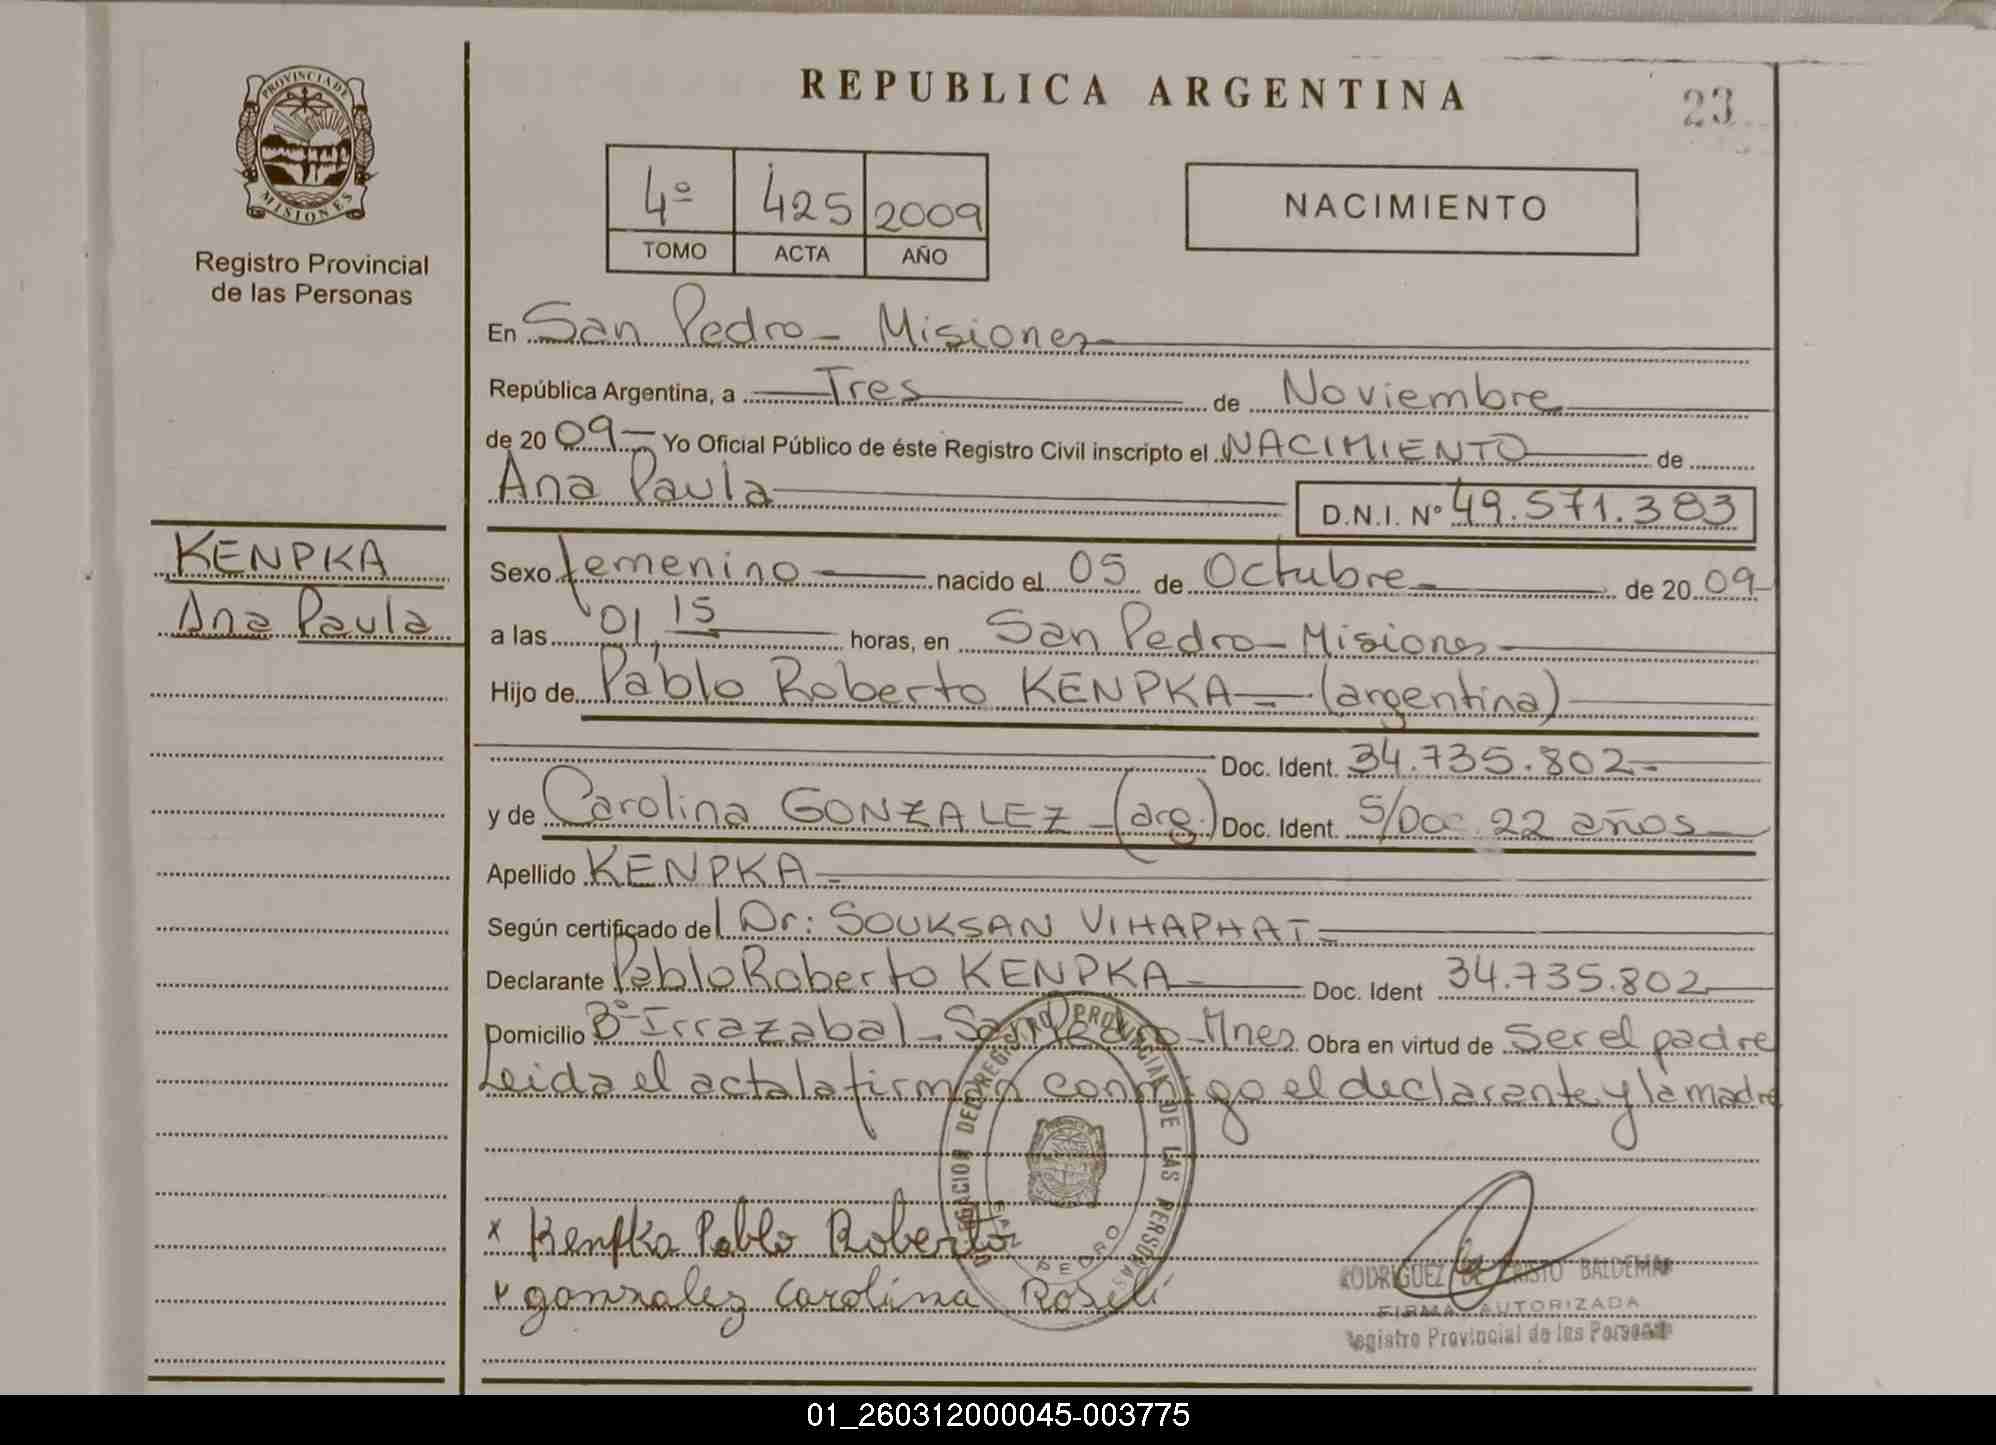 PROVINCIA DE
MISIONES
Registro Provincial
de las Personas
KENPKA
Ana Paula
REPUBLICA ARGENTINA
23
4º 425 2009
TOMO ACTA AÑO
NACIMIENTO
En San Pedro - Misiones
República Argentina, a Tres de Noviembre
de 2009 Yo Oficial Público de éste Registro Civil inscripto el NACIMIENTO de
Ana Paula D.N.I. Nº 49.571.383
Sexo femenino nacido el 05 de Octubre de 2009
a las 01,15 horas, en San Pedro - Misiones
Hijo de Pablo Roberto KENPKA (argentina)
Doc. Ident. 34.735.802
y de Carolina GONZALEZ (arg.) Doc. Ident. S/Doc. 22 años
Apellido KENPKA
Según certificado del Dr: SOUKSAN VIHAPHAT
Declarante Pablo Roberto KENPKA Doc. Ident 34.735.802
Domicilio Bº Irrazabal - San Pedro - Mnes Obra en virtud de ser el padre
Leida el acta la firman conmigo el declarante y la madre
DEL REGISTRO PROVINCIAL DE LAS PERSONAS
SAN PEDRO
x Kenpka Pablo Roberto
x gonzalez carolina Roseli
RODRIGUEZ DE CRISTO BALDEMAR
FIRMA AUTORIZADA
Registro Provincial de las Personas
01_260312000045-003775